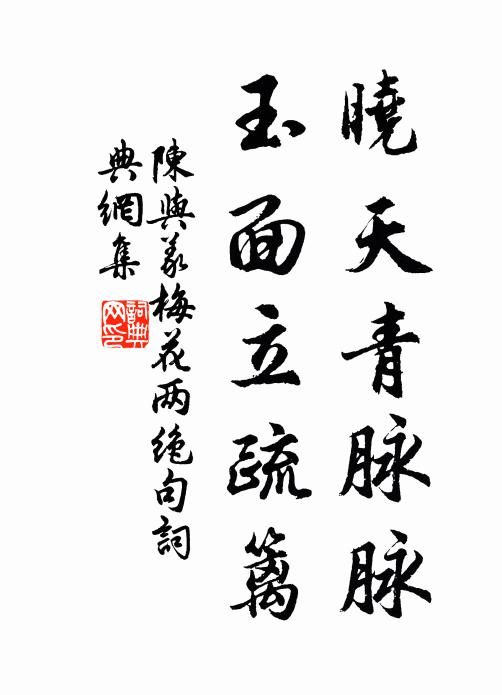 曉天青脉脉
玉面立疏篱
陳與義梅花两絶句詞
典網集
詞典网印